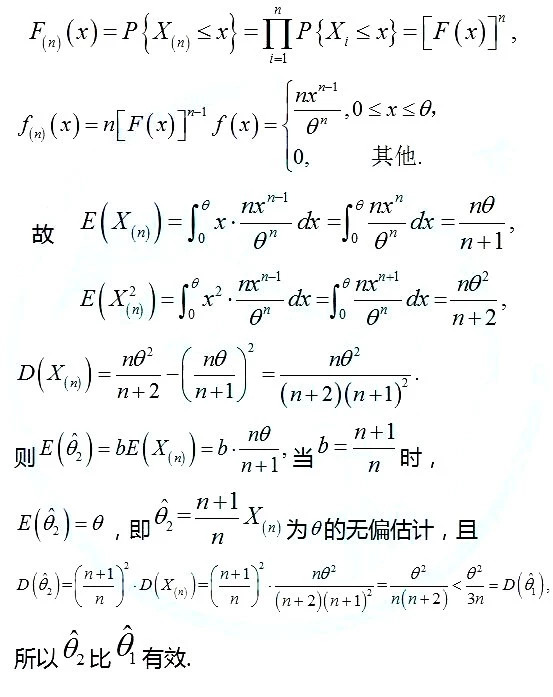 F_{(n)}(x)=P{X_{(n)}≤x}=∏_{i=1}^{n}P{X_i≤x}=[F(x)]^n,
f_{(n)}(x)=n[F(x)]^{n-1}f(x)={\frac{nx^{n-1}}{θ^n},0≤x≤θ,
0, 其他.
故 E(X_{(n)})=∫_0^θ x·\frac{nx^{n-1}}{θ^n}dx=∫_0^θ \frac{nx^n}{θ^n}dx=\frac{nθ}{n+1},
E(X_{(n)}^2)=∫_0^θ x^2·\frac{nx^{n-1}}{θ^n}dx=∫_0^θ \frac{nx^{n+1}}{θ^n}dx=\frac{nθ^2}{n+2},
D(X_{(n)})=\frac{nθ^2}{n+2}-(\frac{nθ}{n+1})^2=\frac{nθ^2}{(n+2)(n+1)^2}.
则 E(\hat{θ}_2)=bE(X_{(n)})=b·\frac{nθ}{n+1},当 b=\frac{n+1}{n} 时，
E(\hat{θ}_2)=θ ，即 \hat{θ}_2=\frac{n+1}{n}X_{(n)} 为θ的无偏估计，且
D(\hat{θ}_2)=(\frac{n+1}{n})^2·D(X_{(n)})=(\frac{n+1}{n})^2·\frac{nθ^2}{(n+2)(n+1)^2}=\frac{θ^2}{n(n+2)}<\frac{θ^2}{3n}=D(\hat{θ}_1),
所以 \hat{θ}_2 比 \hat{θ}_1 有效.